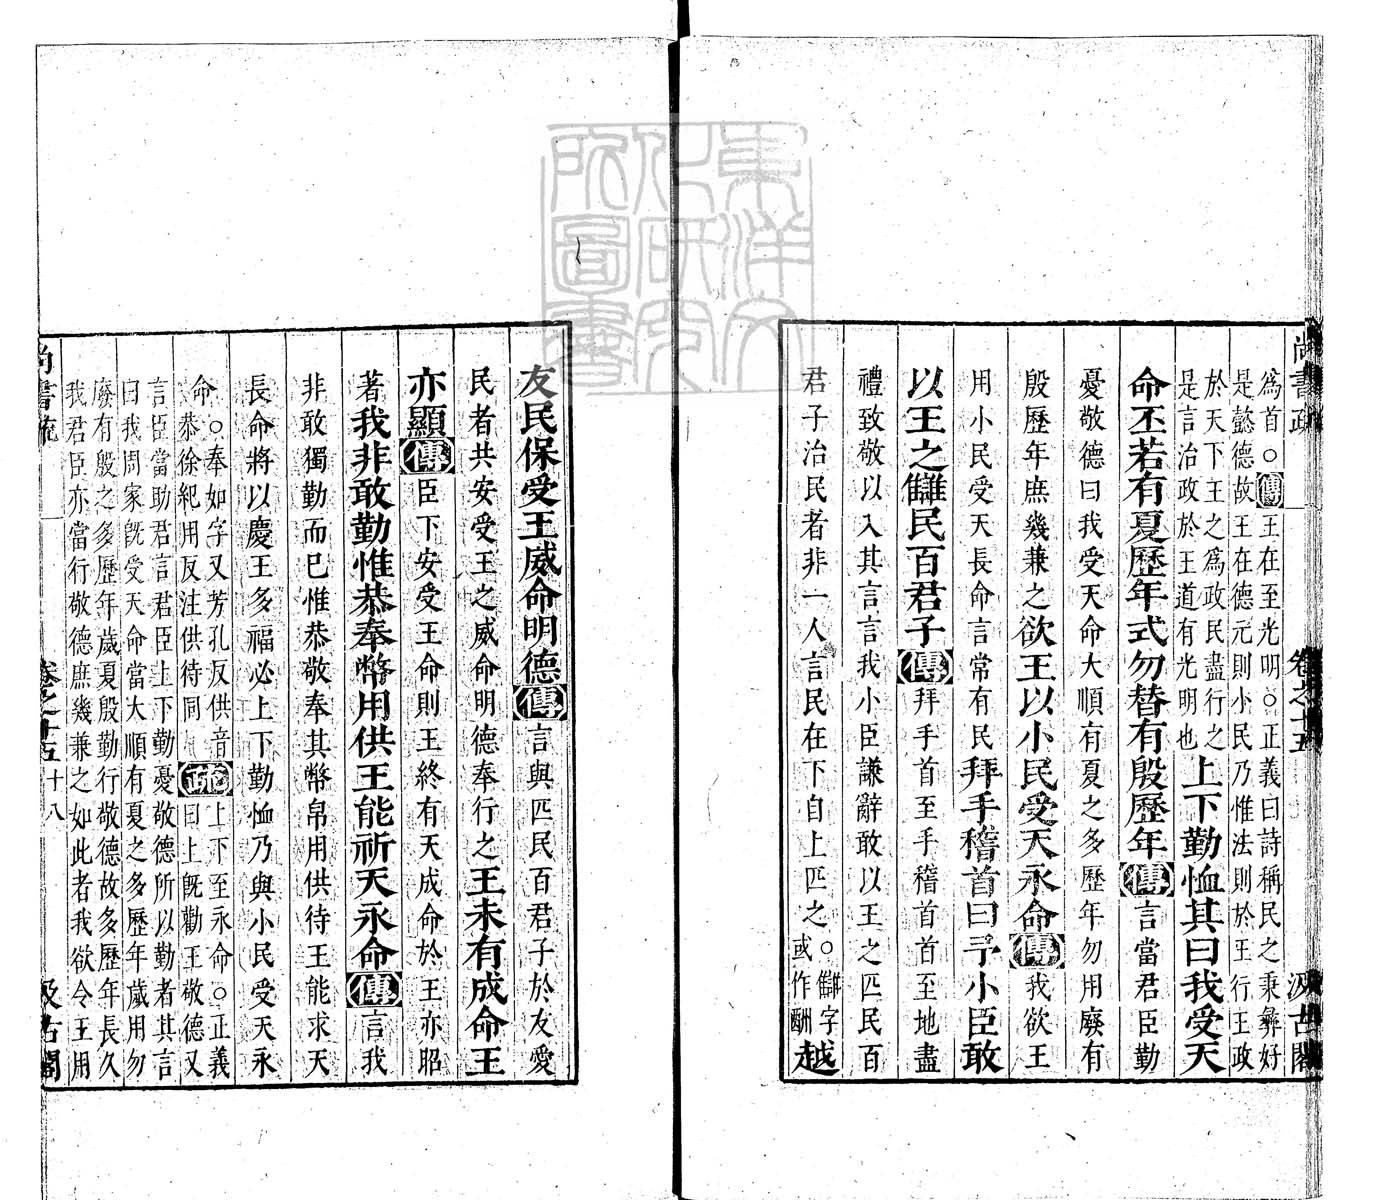 尚書疏 卷之十五 汲古閣
爲首。○傳王在至光明。○正義曰詩稱民之秉彝好
是懿德故王在德元則小民乃惟法則於王行王政
於天下王之爲政民盡行之
是言治政於王道有光明也
上下勤恤其曰我受天
命丕若有夏歷年式勿替有殷歷年傳言當君臣勤
憂敬德曰我受天命大順有夏之多歷年勿用廢有
殷歷年庶幾兼之欲王以小民受天永命傳我欲王
用小民受天長命言常有民拜手稽首曰予小臣敢
以王之讎民百君子傳拜手首至手稽首首至地盡
禮致敬以入其言言我小臣謙辭敢以王之匹民百
君子治民者非一人言民在下自上匹之。○讎字
或作酬
越
友民保受王威命明德傳言與匹民百君子於友愛
民者共安受王之威命明德奉行之王末有成命王
亦顯傳臣下安受王命則王終有天成命於王亦昭
著我非敢勤惟恭奉幣用供王能祈天永命傳言我
非敢獨勤而已惟恭敬奉其幣帛用供待王能求天
長命將以慶王多福必上下勤恤乃與小民受天永
命○奉如字又芳孔反供音
恭徐紀用反注供待同
疏上下至永命○正義
曰上旣勸王敬德又
言臣當助君言君臣上下勤憂敬德所以勤者其言
曰我周家旣受天命當大順有夏之多歷年歲用勿
廢有殷之多歷年歲夏殷勤行敬德故多歷年長久
我君臣亦當行敬德庶幾兼之如此者我欲令王用
尚書疏 卷之十五 十八 汲古閣
東洋文化研究所圖書